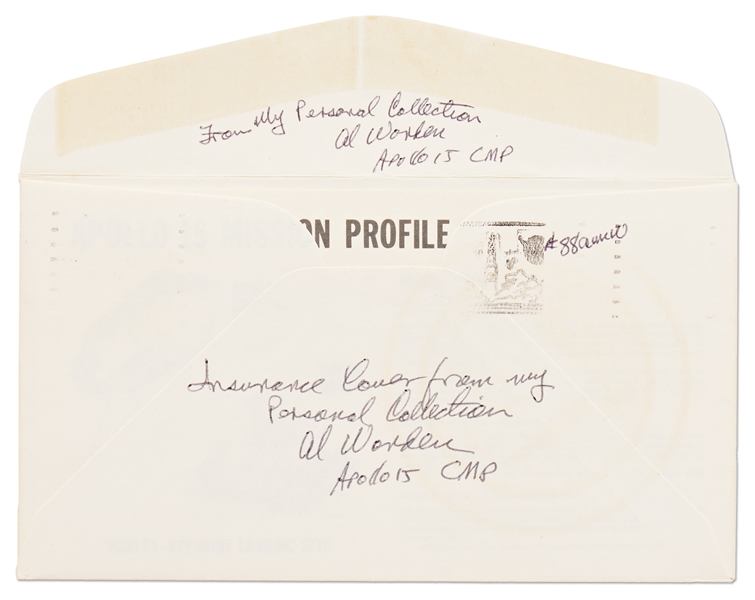 From My Personal Collection
Al Worden
Apollo 15 CMP
N PROFILE
Insurance Cover from my
Personal Collection
Al Worden
Apollo 15 CMP